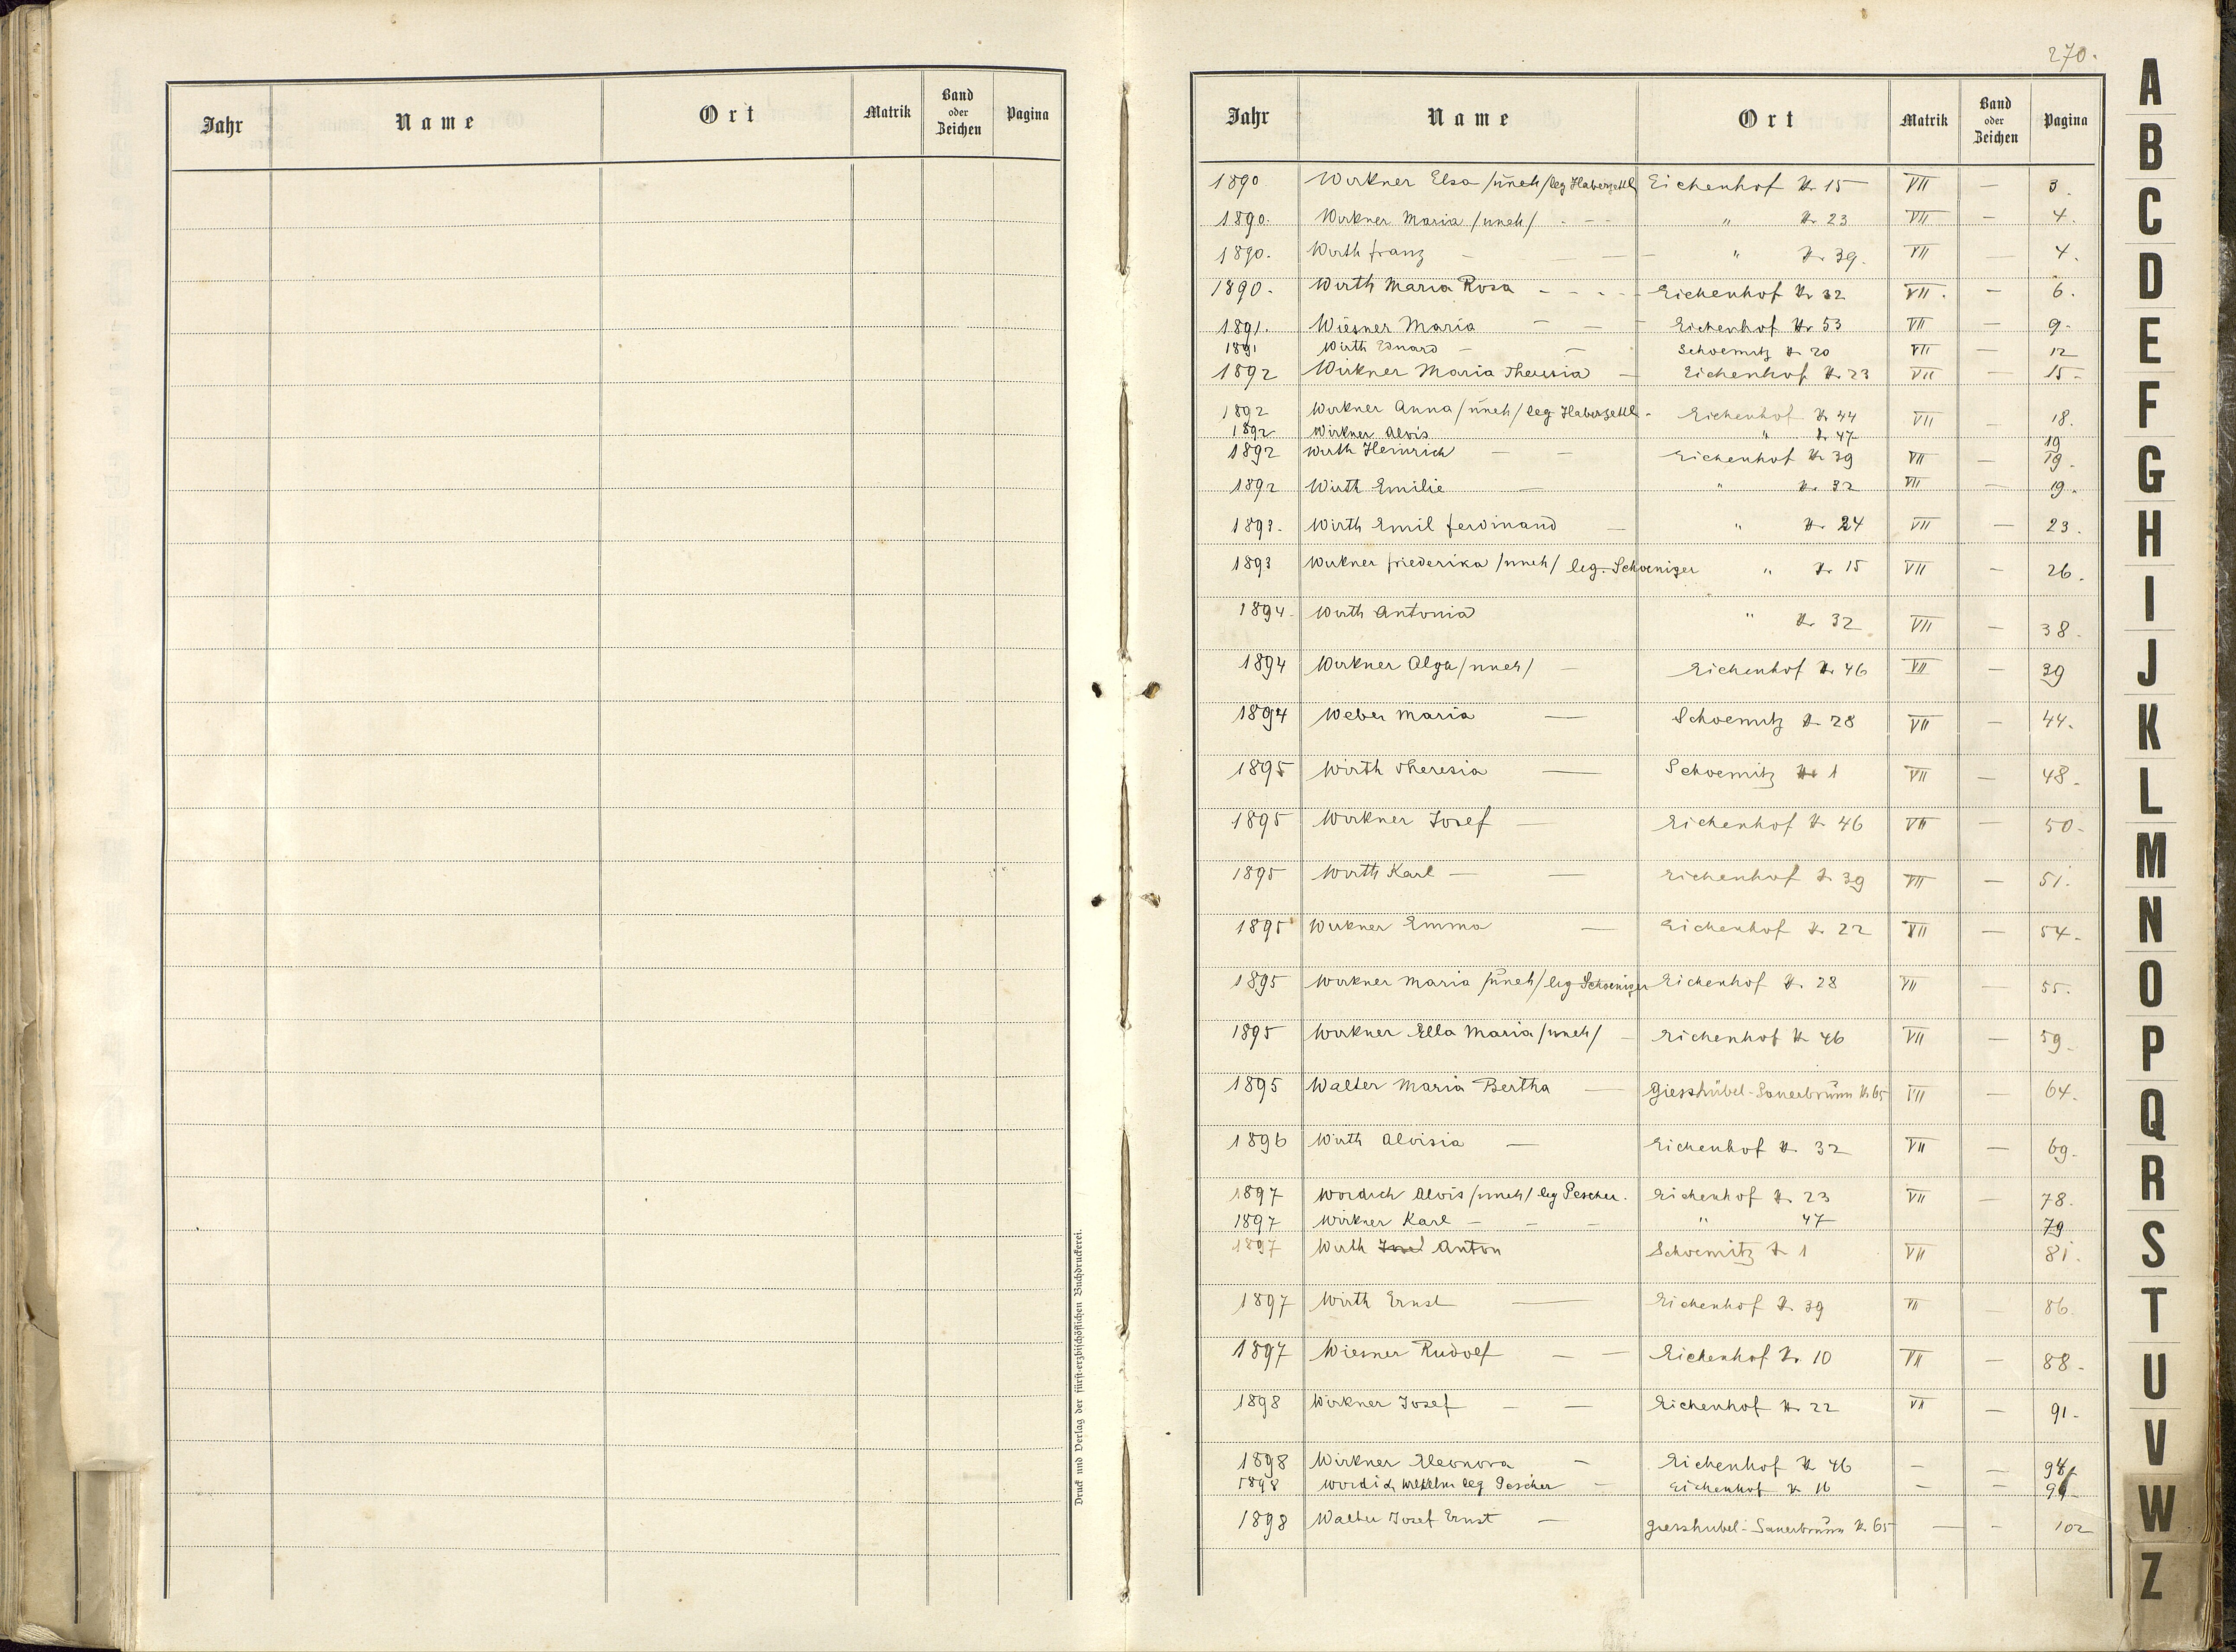 Jahr Name Ort Matrik Band oder Zeichen Pagina
Druck und Verlag der fürst-erzbischöflichen Buchdruckerei.
270.
Jahr Name Ort Matrik Band oder Zeichen Pagina
1890 Wirkner Elsa /uneh/ leg Haberzettl Eichenhof Nr 15 VII — 3.
1890. Wirkner Maria /uneh/ - - - " Nr 23 VII — 4.
1890. Wirth Franz — — — " Nr 39. VII — 4.
1890. Wirth Maria Rosa - - - - Eichenhof Nr 32 VII. — 6.
1891. Wiesner Maria — — — Eichenhof Nr 53 VII — 9.
1891 Wirth Eduard — — Schoemitz Nr 20 VII — 12
1892 Wirkner Maria Theresia — Eichenhof Nr 23 VII — 15-
1892 Wirkner Anna /uneh/ leg Haberzettl - Eichenhof Nr 44 VII — 18.
1892 Wirkner Alois " Nr 47 19
1892 Wirth Heinrich — — Eichenhof Nr 39 VII — 19.
1892 Wirth Emilie — " Nr 32 VII — 19.
1893. Wirth Emil Ferdinand — " Nr 24 VII — 23.
1893 Wirkner Friederika /uneh/ leg. Schoeniger " Nr 15 VII — 26.
1894. Wirth Antonia " Nr 32 VII — 38.
1894 Wirkner Olga /uneh/ — Eichenhof Nr 46 VII — 39
1894 Weber Maria — Schoemitz Nr 28 VII — 44.
1895 Wirth Theresia — Schoemitz Nr 1 VII — 48.
1895 Wirkner Josef — Eichenhof Nr 46 VII — 50.
1895 Wirth Karl — — Eichenhof Nr 39 VII — 51.
1895 Wirkner Emma — Eichenhof Nr 22 VII — 54.
1895 Wirkner Maria /uneh/ leg Schoeniger Eichenhof Nr. 28 VII — 55.
1895 Wirkner Ella Maria /uneh/ — Eichenhof Nr 46 VII — 59.
1895 Walter Maria Bertha — Giesshübel-Sauerbrunn Nr 65 VII — 64.
1896 Wirth Aloisia — Eichenhof Nr. 32 VII — 69.
1897 Wordich Alois /uneh/ leg Pescher. Eichenhof Nr. 23 VII — 78.
1897 Wirkner Karl — — — " 47 79
1897 Wirth Josef Anton Schoemitz Nr 1 VII 81.
1897 Wirth Ernst — Eichenhof Nr. 39 VII — 86.
1897 Wiesner Rudolf — — Eichenhof Nr. 10 VII — 88.
1898 Wirkner Josef — — Eichenhof Nr. 22 VII — 91.
1898 Wirkner Eleonora — Eichenhof Nr 46 — — 94
1898 Wordich Wilhelm leg Pescher — Eichenhof Nr 16 — —
1898 Walter Josef Ernst — Giesshübel-Sauerbrunn Nr 65 — — 102
A
B
C
D
E
F
G
H
I
J
K
L
M
N
O
P
Q
R
S
T
U
V
W
Z